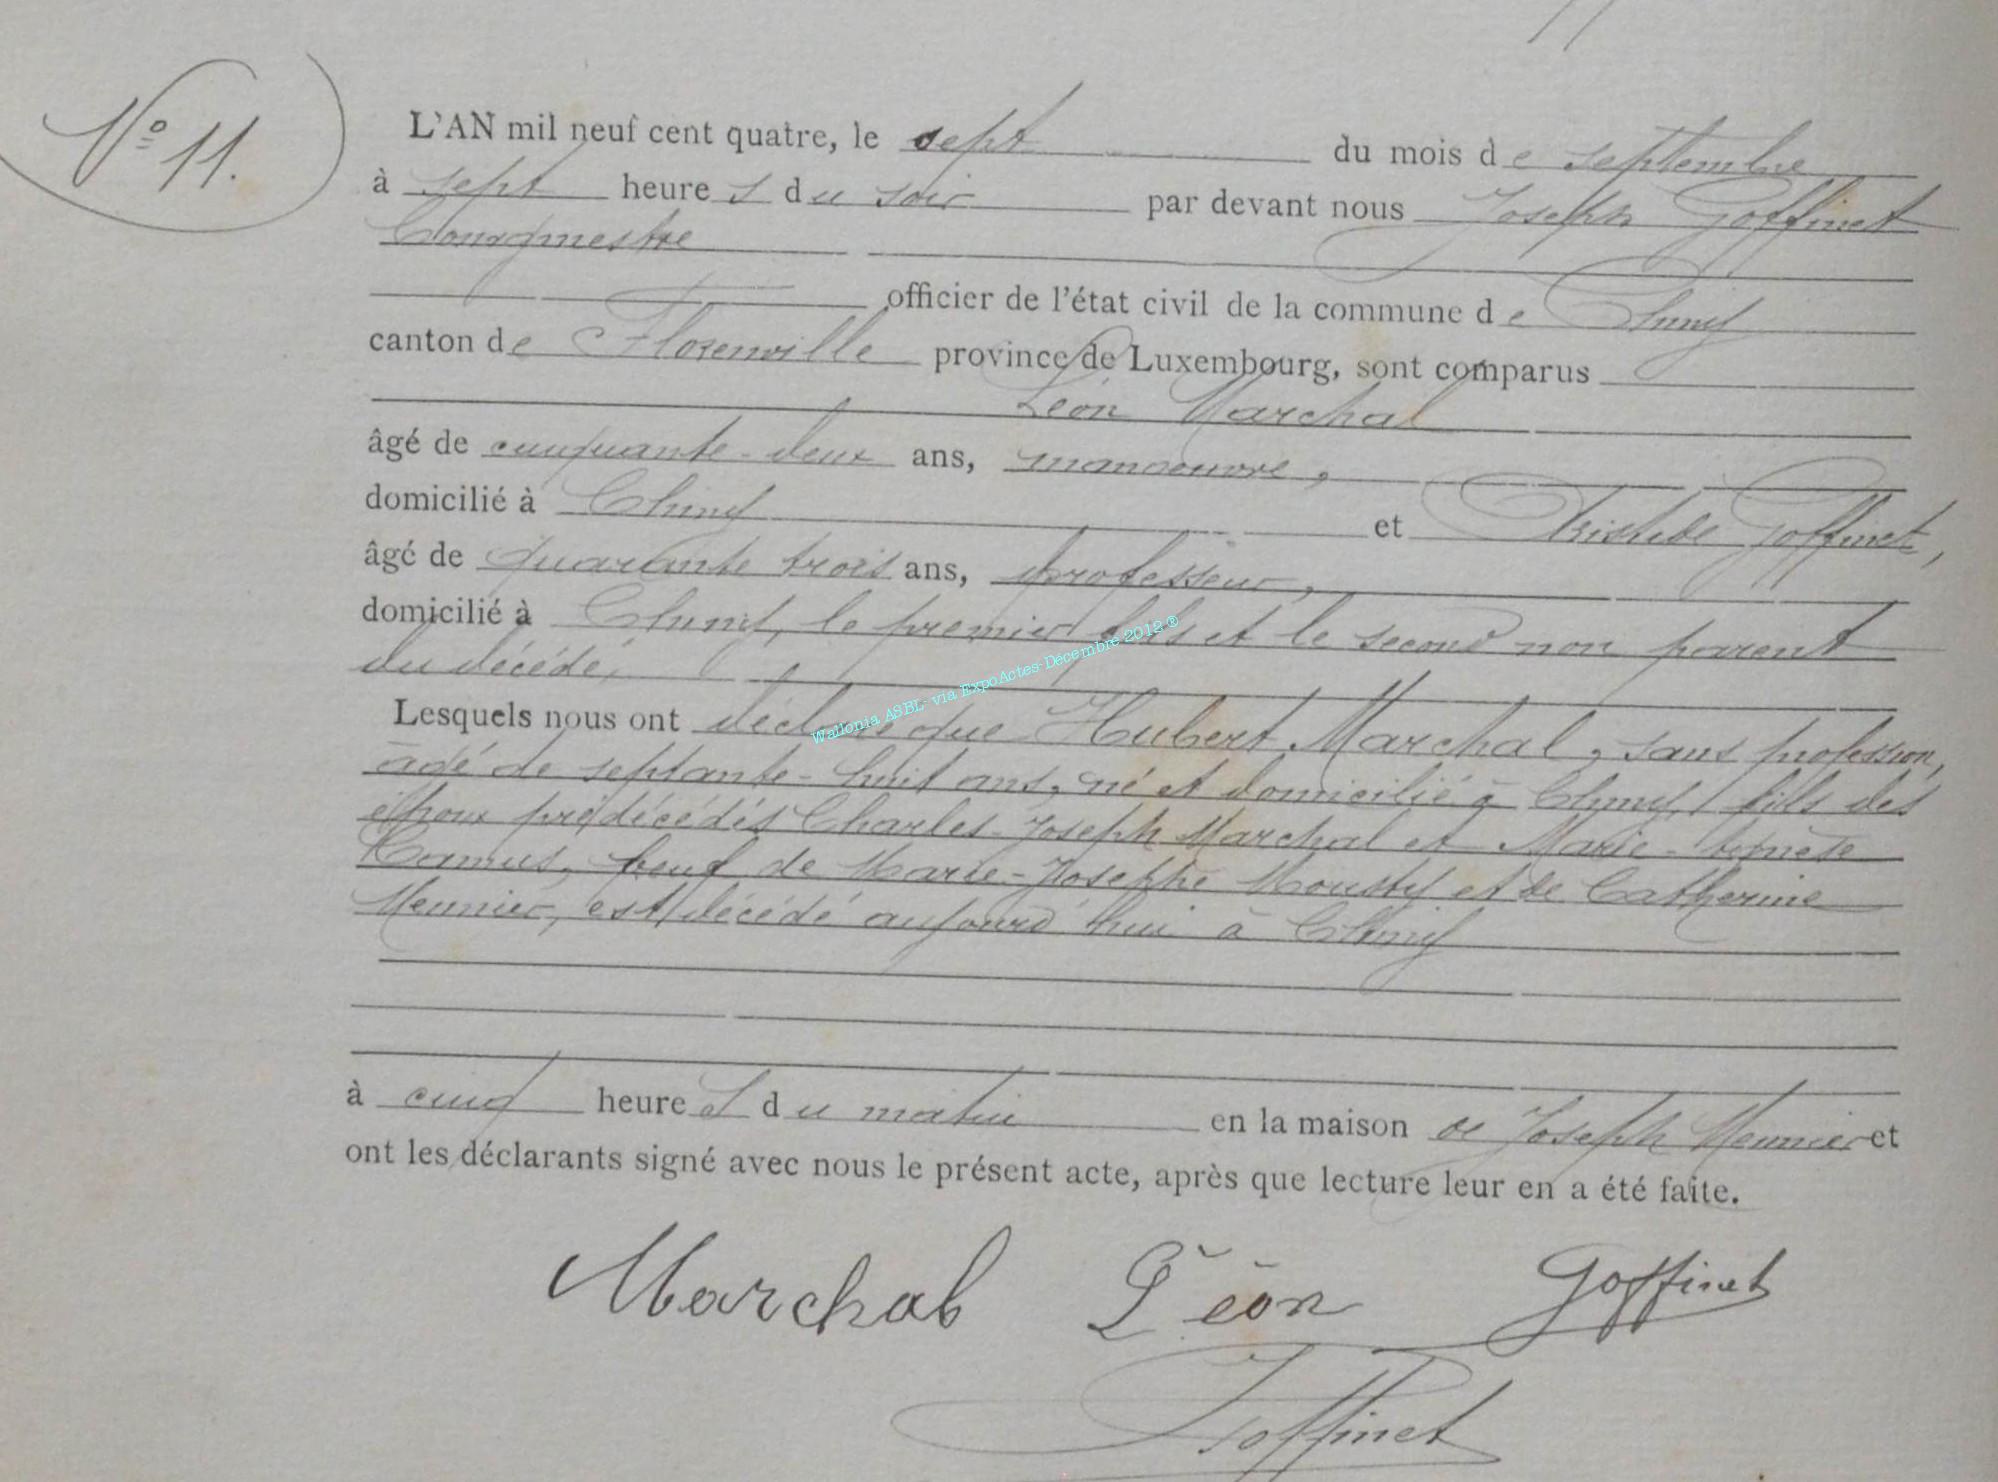 N° 11.
L'AN mil neuf cent quatre, le sept du mois de septembre
à sept heures du soir par devant nous Joseph Goffinet
Bourgmestre
officier de l'état civil de la commune de Chiny
canton de Florenville province de Luxembourg, sont comparus
Léon Marchal
âgé de cinquante-deux ans, manoeuvre,
domicilié à Chiny et Aristide Goffinet,
âgé de quarante trois ans, professeur,
domicilié à Chiny, le premier fils et le second non parent
du décédé,
Lesquels nous ont déclaré que Hubert Marchal, sans profession,
âgé de septante-huit ans, né et domicilié à Chiny, fils des
époux prédécédés Charles-Joseph Marchal et Marie-
Camus, veuf de Marie-Josephe Mousty et de Catherine
Meunier, est décédé aujourd'hui à Chiny
à cinq heures du matin en la maison de Joseph Meunier et
ont les déclarants signé avec nous le présent acte, après que lecture leur en a été faite.
Marchal Léon Goffinet
Goffinet
Wallonia ASBL- via ExpoActes-Décembre 2012 ®